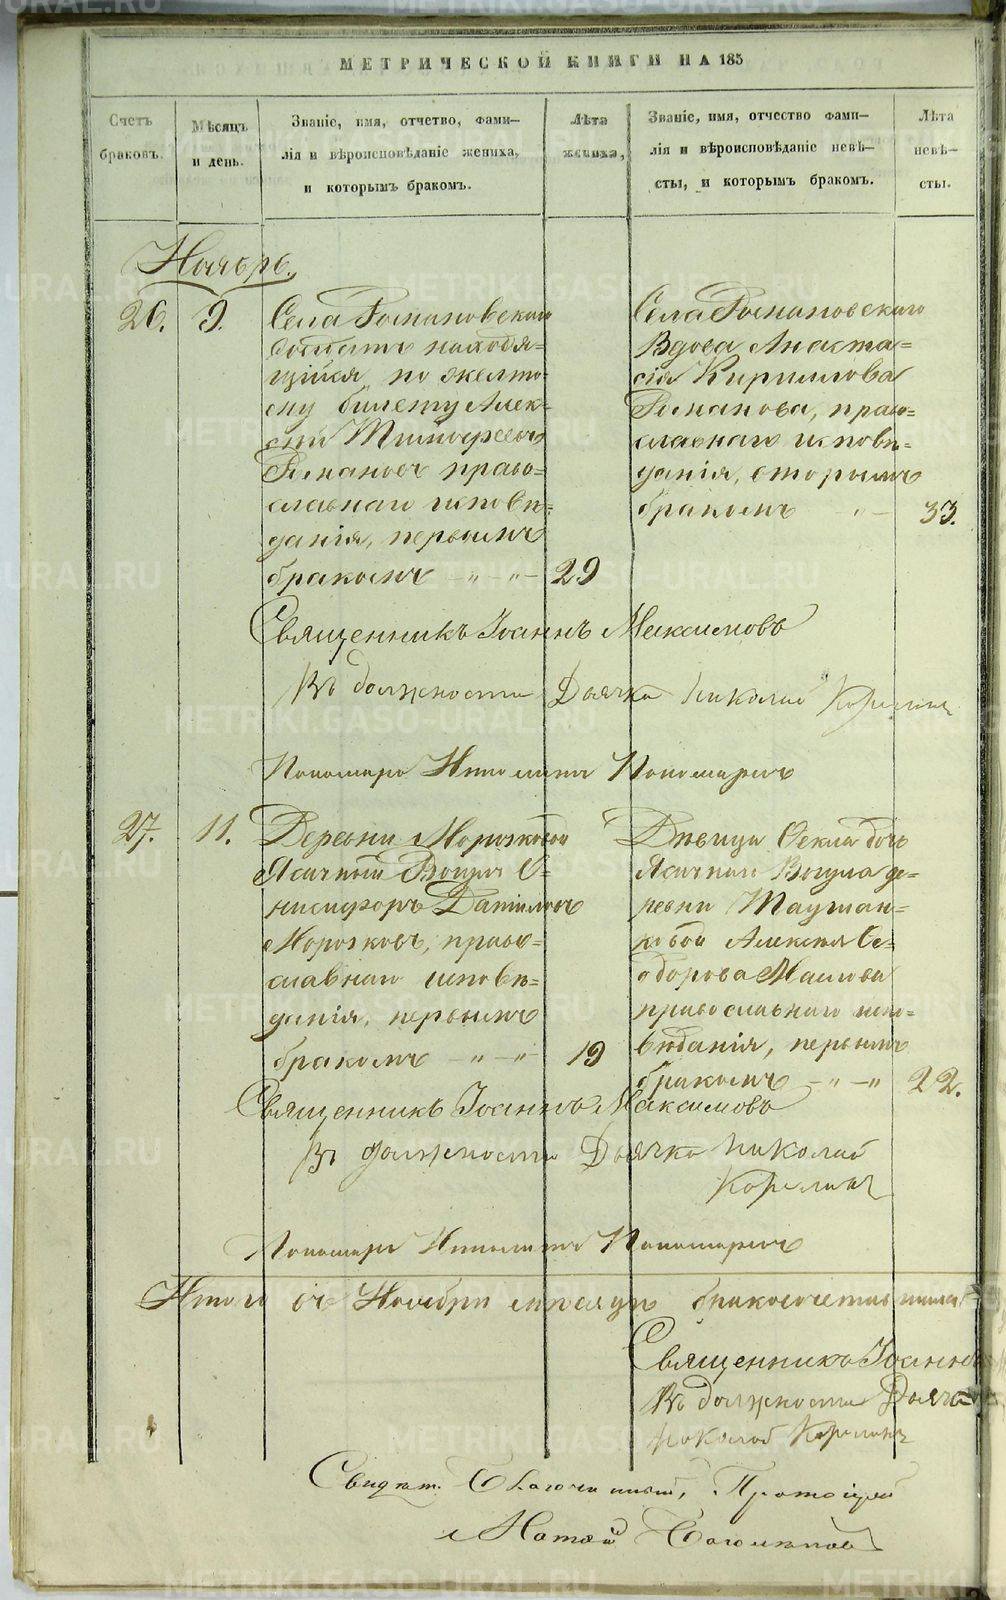 МЕТРИЧЕСКОЙ КНИГИ НА 185
Счетъ браковъ.
Мѣсяцъ и день.
Званіе, имя, отчетво, фами-
лія и вѣроисповѣданіе жениха,
и которымъ бракомъ.
Лѣта жениха,
Званіе, имя, отчество фами-
лія и вѣроисповѣданіе невѣ-
сты, и которымъ бракомъ.
Лѣта невѣ-
сты.
Ноябрь.
26.
9.
Села Романовскаго
солдатъ находя-
щійся по желто-
му билету Алек-
сѣй Тимофеевъ
Романовъ право-
славнаго исповѣ-
данія, первымъ
бракомъ — " — " —
29
Села Романовскаго
Вдова Анаста-
сія Кириллова
Романова, прав-
славнаго исповѣ-
данія, вторымъ
бракомъ " —
33.
Священникъ Іоаннъ Максимовъ
Въ должности Дьячка Николай Корелинъ
Пономарь Ипполитъ Пономаревъ
27.
11.
Деревни Морозковой
Ясачный Вогулъ О-
нисифоръ Даніиловъ
Морозковъ, право-
славнаго исповѣ-
данія, первымъ
бракомъ — " — " —
19
Дѣвица Оекла дочь
Ясачнаго Вогула де-
ревни Таушан-
ковой Алексѣя Ѳе-
одорова Маслова
православнаго испо-
вѣданія, первымъ
бракомъ — " — "
22.
Священникъ Іоаннъ Максимовъ
Въ должности Дьячка Николай
Корелинъ
Пономарь Ипполитъ Пономаревъ
Итого въ Ноябрѣ мѣсяцѣ
Священникъ Іоаннъ
Въ должности Дьячка
Николай Корелинъ
Свидѣт. Благочинный, Протоіерей